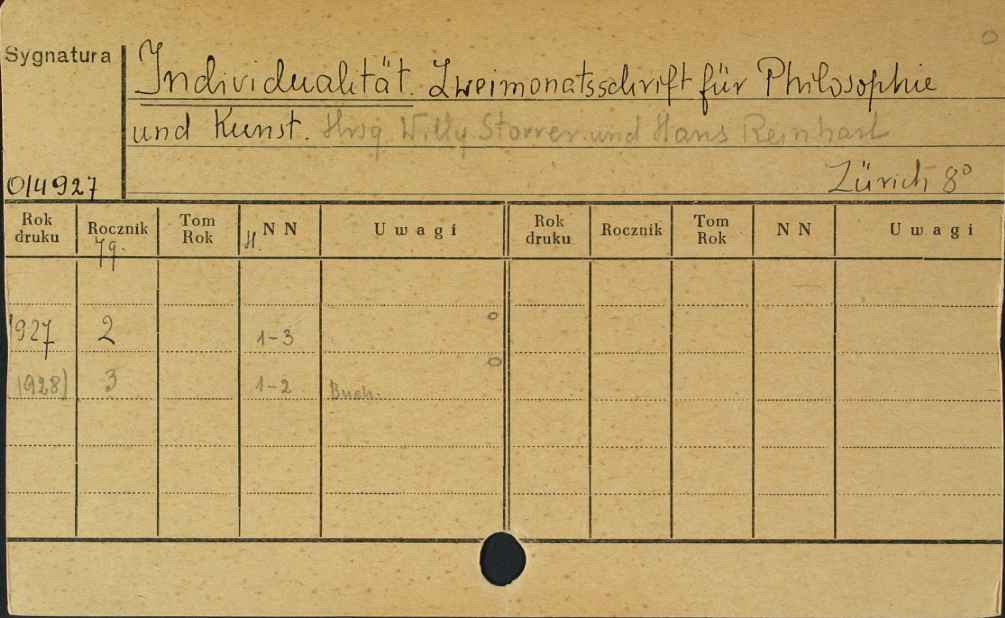 Sygnatura
Individualität. Zweimonatsschrift für Philosophie
und Kunst. Hrsg. Willy Storrer und Hans Reinhart
0/4927
Zürich 8°
Rok druku Rocznik Tom Rok NN Uwagi Rok druku Rocznik Tom Rok NN Uwagi
Jg. H.
1927 2 1-3
(1928) 3 1-2 Buch.